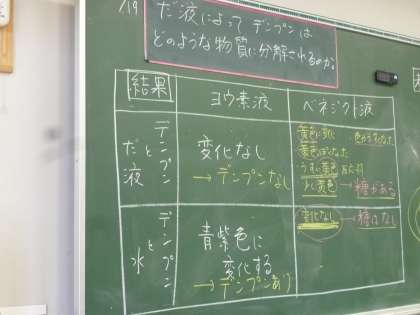 7/9
だ液によってデンプンは
どのような物質に分解されるのか。
結果
ヨウ素液
ベネジクト液
デンプンとだ液
変化なし
→デンプンなし
黄色に変化
色がうすくなった
黄色っぽくなった
うすい黄色
少し黄色→糖がある
デンプンと水
青紫色に
変化する
→デンプンあり
変化なし→糖はなし